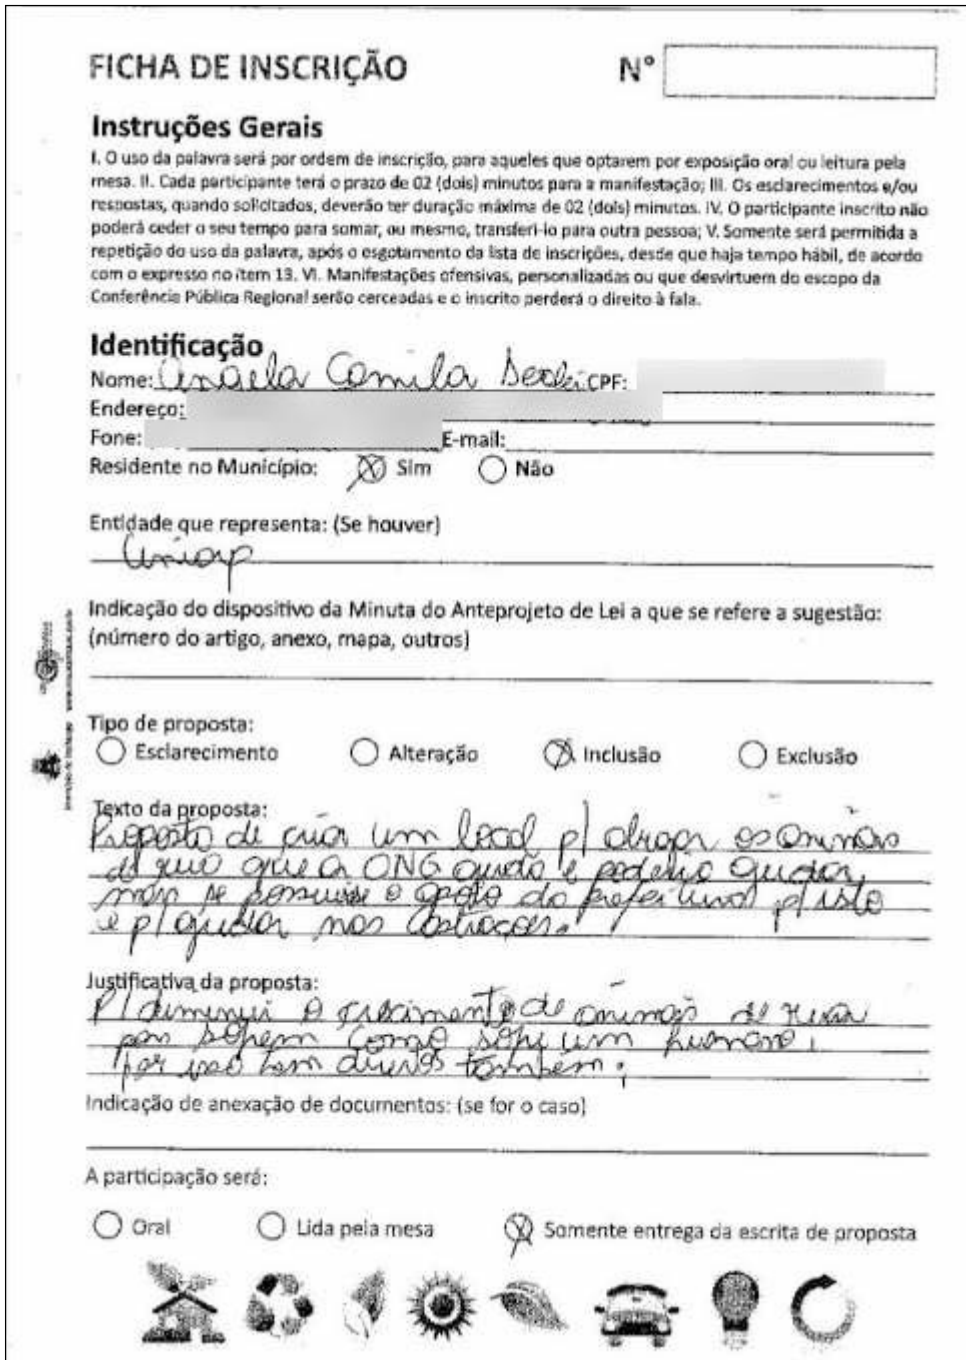 FICHA DE INSCRIÇÃO
N°
Instruções Gerais
I. O uso da palavra será por ordem de inscrição, para aqueles que optarem por exposição oral ou leitura pela
mesa. II. Cada participante terá o prazo de 02 (dois) minutos para a manifestação; III. Os esclarecimentos e/ou
respostas, quando solicitados, deverão ter duração máxima de 02 (dois) minutos. IV. O participante inscrito não
poderá ceder o seu tempo para somar, ou mesmo, transferi-lo para outra pessoa; V. Somente será permitida a
repetição do uso da palavra, após o esgotamento da lista de inscrições, desde que haja tempo hábil, de acordo
com o expresso no item 13. VI. Manifestações ofensivas, personalizadas ou que desvirtuem do escopo da
Conferência Pública Regional serão cerceadas e o inscrito perderá o direito à fala.
Identificação
Nome: Angela Camila CPF:
Endereço:
Fone: E-mail:
Residente no Município: Sim Não
Entidade que representa: (Se houver)
Indicação do dispositivo da Minuta do Anteprojeto de Lei a que se refere a sugestão:
(número do artigo, anexo, mapa, outros)
Tipo de proposta:
Esclarecimento Alteração Inclusão Exclusão
Texto da proposta:
Proposta de criar um local p/ os animais
de que a ONG ajuda e poderia ajudar
mais se possuisse o apoio da prefeitura p/ isto
e p/ ajudar nas castrações.
Justificativa da proposta:
P/ diminuir o crescimento de animais de rua
pois sofrem como sofre um humano,
por isso tem direitos também.
Indicação de anexação de documentos: (se for o caso)
A participação será:
Oral Lida pela mesa Somente entrega da escrita de proposta